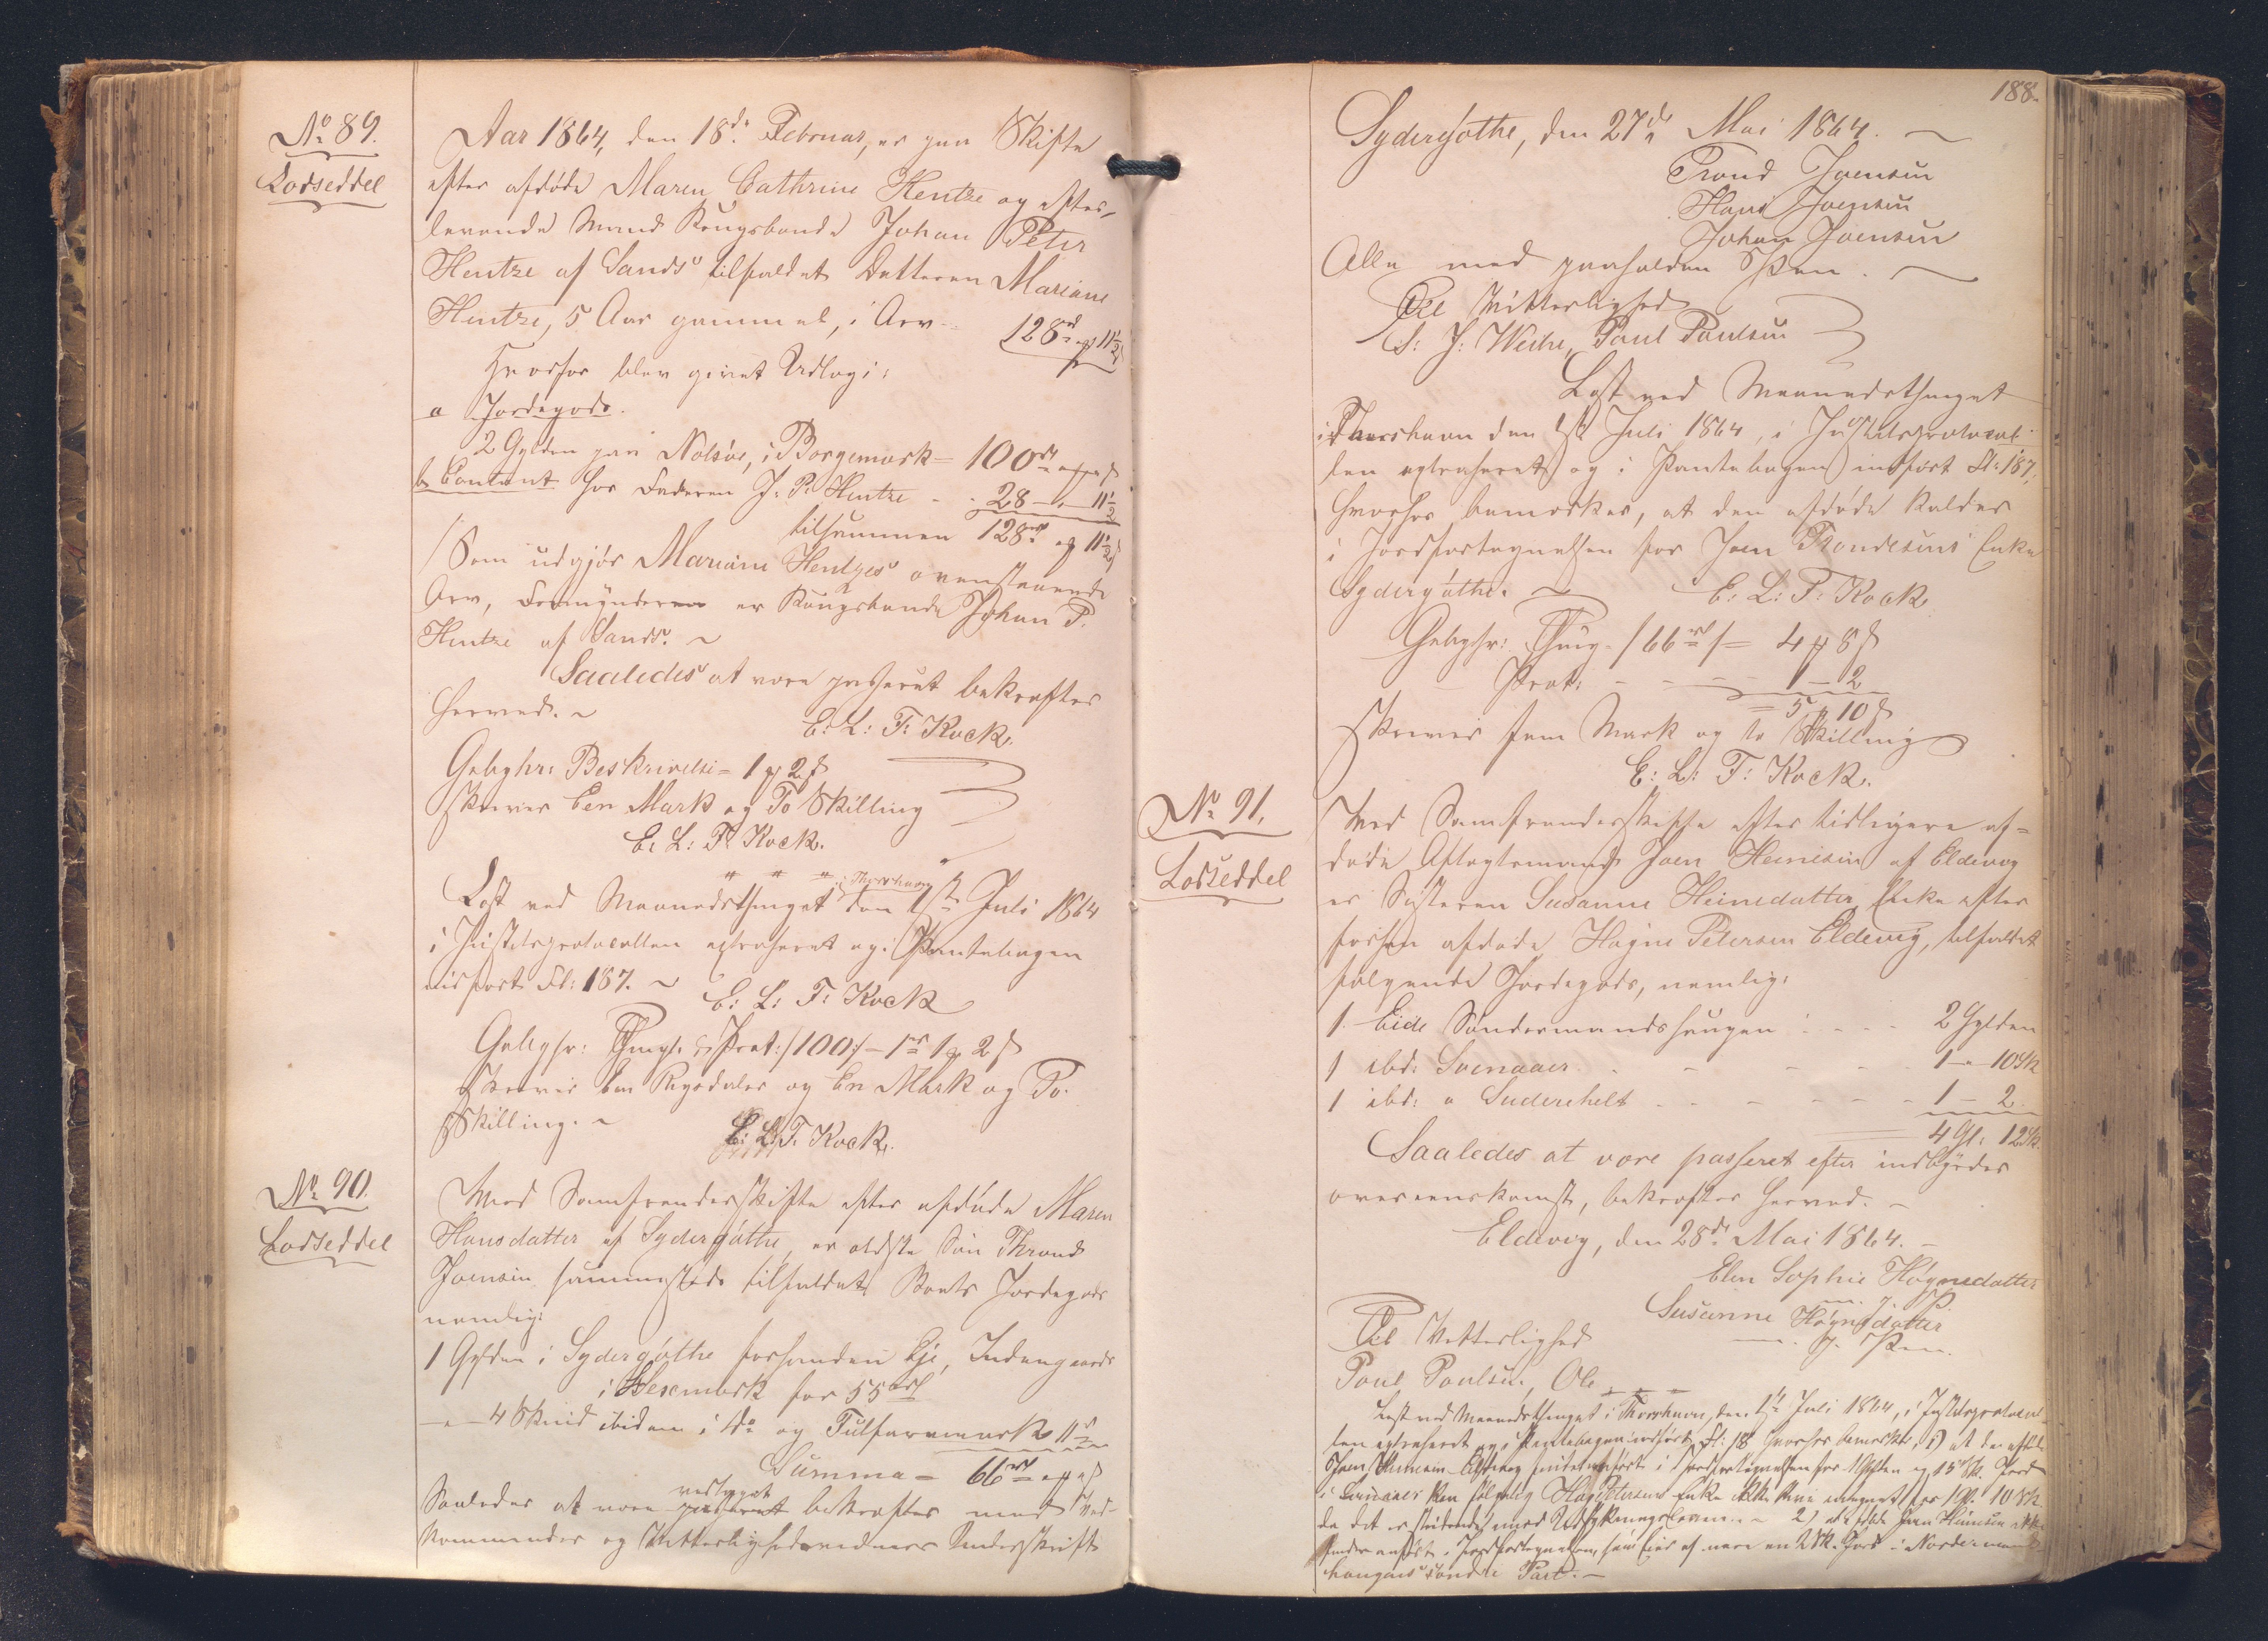 No 89.
Lodseddel
Aar 1864, den 18de Februar, er paa Skifte
efter afdøde Maren Cathrine Hentze og efter-
levende Mand Kongsbonde Johan Peter
Hentze af Sands tilfaldet Datteren Mariane
Hentze, 5 Aar gammel, i Arv 128rd " 11½ s
Hvorfor blev givet Udlæg:
a Jordegods.
2 Gylden paa Nolsøe, i Borgemark = 100rd
b Contant hos Faderen J. P. Hentze - - 28 - " 11½
tilsammen 128rd " 11½ s
Som udgjør Mariane Hentzes ovenstaaende
Arv, Formynderen er Kongsbonde Johan P.
Hentze af Sands. ~
Saaledes at være passeret bekræftes
herved. ~
E: L: T: Kock.
Gebyhr: Beskrivelse = 1 # 2 s
skriver Een Mark og To Skilling
E: L: T: Kock.
Læst ved Maanedsthinget i Thorshavn den 1ste Juli 1864
i Justitsprotocollen extraheret og i Pantebogen
indført Fl: 187. ~
E: L: T: Kock
Gebyhr: Thingl. & Prot: /100/ - 1rd 1 # 2 s
skrivis Een Rigsdaler og En Mark og To
Skilling. ~
E: L: T. Kock.
No 90.
Lodseddel
Med Samfrænderskifte efter afdøde Maren
Hansdatter af Sydergøthe, er ældste Søn Thrond
Joensen sammesteds tilfaldet Jordegods
nemlig:
1 Gylden i Sydergøthe Eje, Indengaards
i for 55rd
- " - 4 Skind ibidem i do og 11 "
Summa = 66rd
Saaledes at være vedtaget passeret bekræftes med Ved-
kommendes og Vitterlighedsvidners Underskrift
188.
Sydergøthe, den 27de Mai 1864. ~
Trond Joensen
Hans Joensen
Johan Joensen
Alle med paaholden Pen. ~
Til Vitterlighed
S: J: Weihe, Paul Paulsen
Læst ved Maanedsthinget
i Thorshavn den 1ste Juli 1864, i Justitsprotocol-
len extraheret og i Pantebogen indført Fl: 187,
hvorhos bemærkes, at den afdøde kaldes
i Jordfortegnelsen for Joen Trondesens Enke
Sydergøthe. ~
E: L: T: Kock
Gebyhr: Thing = /66rd/ = 4 # 8 s
Prot: - - - - 1 - 2
= 5 # 10 s
skrives fem Mark og ti Skilling
E: L: T: Kock.
No 91.
Lodseddel
Med Samfrænderskifte efter tidligere af-
døde Aftægtsmand Joen Heinesen af Eldevig
er Søsteren Susanne Heinesdatter, Enke efter
forhen afdøde Høgne Petersen Eldevig, tilfaldet
følgende Jordegods, nemlig:
1 Eide Søndermandshaugen : - - - 2 Gylden
1 ibd: Svenaaer - - - - 1 - " - 10 Sk
1 ibd: a Suderihelt - - - - - 1 - 2.
4 Gl: 12 Sk.
Saaledes at være passeret efter indbyrdes
overeenskomst, bekræftes herved. ~
Eldevig, den 28de Mai 1864. -
Elen Sophie Høgnesdatter
m. f. P.
Susanne Høgnesdatter
- . f. Pen.
Til Vitterlighed
Poul Poulsen, Ole
Læst ved Maanedsthinget i Thorshavn, den 1ste Juli 1864, i Justitsprotocol-
len extraheret og i Pantebogen indført Fl: 18 hvorhos bemærkes, 1) at den afdøde
Joen Heinesen Eldevig findes anført i Jordfortegnelsen for 1 Gylden og 15 Sk. Jord
i Svenaaer kan følgelig Høgne Petersens Enke ikke blive tillagt for 1 Gl. 10 Sk
da det er stridende mod Udstykningsloven. - 2) at afdøde Joen Heinesen ikke
findes anført i Jordfortegnelsen, som Eier af mere en 2 Sk. Jord i Nordermands-
haugens søndre Part. -